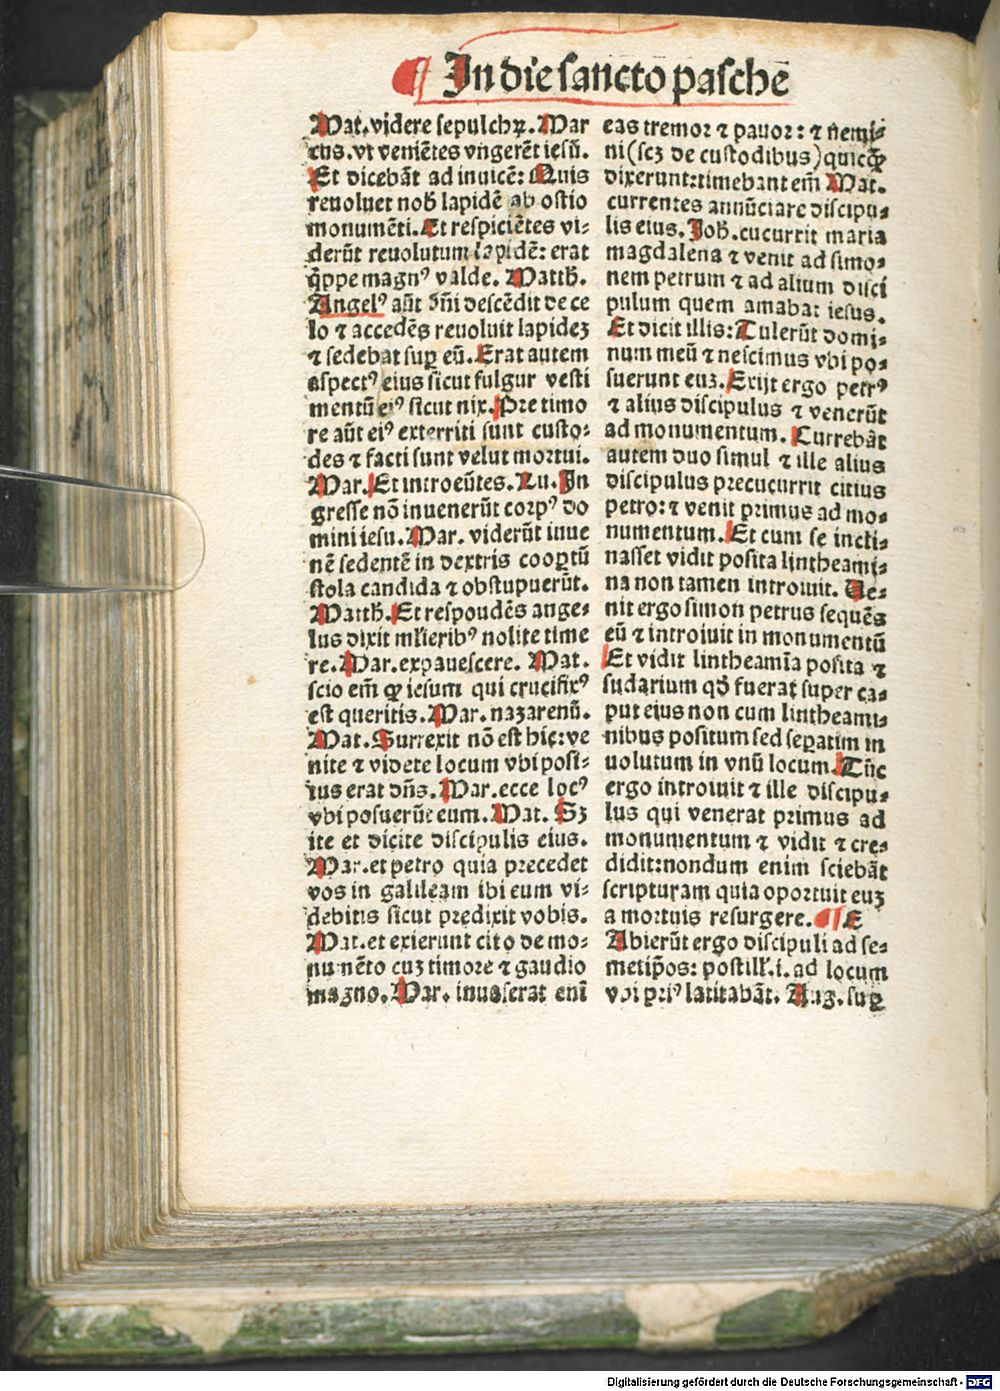 ¶ In die sancto pasche
Mat. videre sepulchꝝ. Mar
cus. vt veniētes vngerēt iesū.
Et dicebāt ad inuicē: Quis
reuoluet nob̄ lapidē ab ostio
monumēti. Et respiciētes vi⸗
derūt reuolutum lapidē: erat
q̄ppe magnꝰ valde. Matth̄.
Angelꝰ aūt dn̄i descēdit de ce
lo ⁊ accedēs reuoluit lapideʒ
⁊ sedebat suꝑ eū. Erat autem
aspectꝰ eius sicut fulgur vesti
mentū eiꝰ sicut nix. Pre timo
re aūt eiꝰ exterriti sunt custo⸗
des ⁊ facti sunt velut mortui.
Mar. Et introeūtes. Lu. In
gresse nō inuenerūt corpꝰ do
mini iesu. Mar. viderūt iuue
nē sedentē in dextris cooꝑtū
stola candida ⁊ obstupuerūt.
Matth̄. Et respoudēs ange⸗
lus dixit mlieribꝰ nolite time
re. Mar. expauescere. Mat.
scio em̄ ꝙ iesum qui crucifixꝰ
est queritis. Mar. naʒarenū.
Mat. Surrexit nō est hic: ve
nite ⁊ videte locum vbi posi⸗
tus erat dn̄s. Mar. ecce locꝰ
vbi posuerūt eum. Mat. Sʒ
ite et dicite discipulis eius.
Mar. et petro quia precedet
vos in galileam ibi eum vi⸗
debitis sicut predixit vobis.
Mat. et exierunt cito de mo⸗
numēto cuʒ timore ⁊ gaudio
magno. Mar. inuaserat eni
eas tremor ⁊ pauor: ⁊ nemi⸗
ni (scʒ de custodibus) quicꝙ̄
dixerunt: timebant em̄ Mat.
currentes annūciare discipu⸗
lis eius. Joh̄. cucurrit maria
magdalena ⁊ venit ad simo⸗
nem petrum ⁊ ad alium disci
pulum quem amabat iesus.
Et dicit illis: Tulerūt domi⸗
num meū ⁊ nescimus vbi po⸗
suerunt euʒ. Exijt ergo petrꝰ
⁊ alius discipulus ⁊ venerūt
ad monumentum. Currebāt
autem duo simul ⁊ ille alius
discipulus precucurrit citius
petro: ⁊ venit primus ad mo⸗
numentum. Et cum se incli⸗
nasset vidit posita lintheami⸗
na non tamen introiuit. Ue⸗
nit ergo simon petrus sequēs
eū ⁊ introiuit in monumentū
Et vidit lintheamīa posita ⁊
sudarium qd̄ fuerat super ca⸗
put eius non cum lintheami⸗
nibus positum sed seꝑatim in
uolutum in vnū locum. Tūc
ergo introiuit ⁊ ille discipu⸗
lus qui venerat primus ad
monumentum ⁊ vidit ⁊ cre⸗
didit: nondum enim sciebāt
scripturam quia oportuit euʒ
a mortuis resurgere. ¶ E
Abierūt ergo discipuli ad se⸗
metip̄os: postill̄. i. ad locum
vbi priꝰ latitabāt. Aug. suꝑ
Digitalisierung gefördert durch die Deutsche Forschungsgemeinschaft - DFG